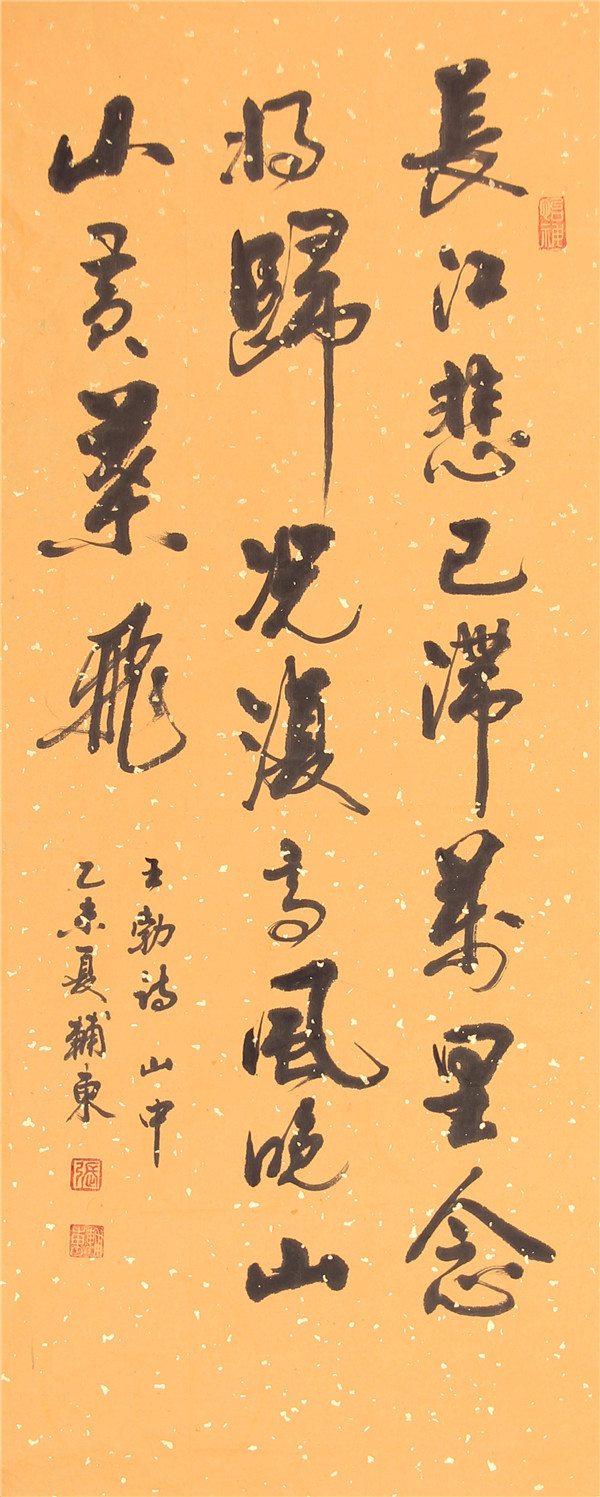 長江悲已滯萬里念
将歸况復高風晚山
山黄葉飛
王勃詩山中
乙未夏輔東
張
輔東